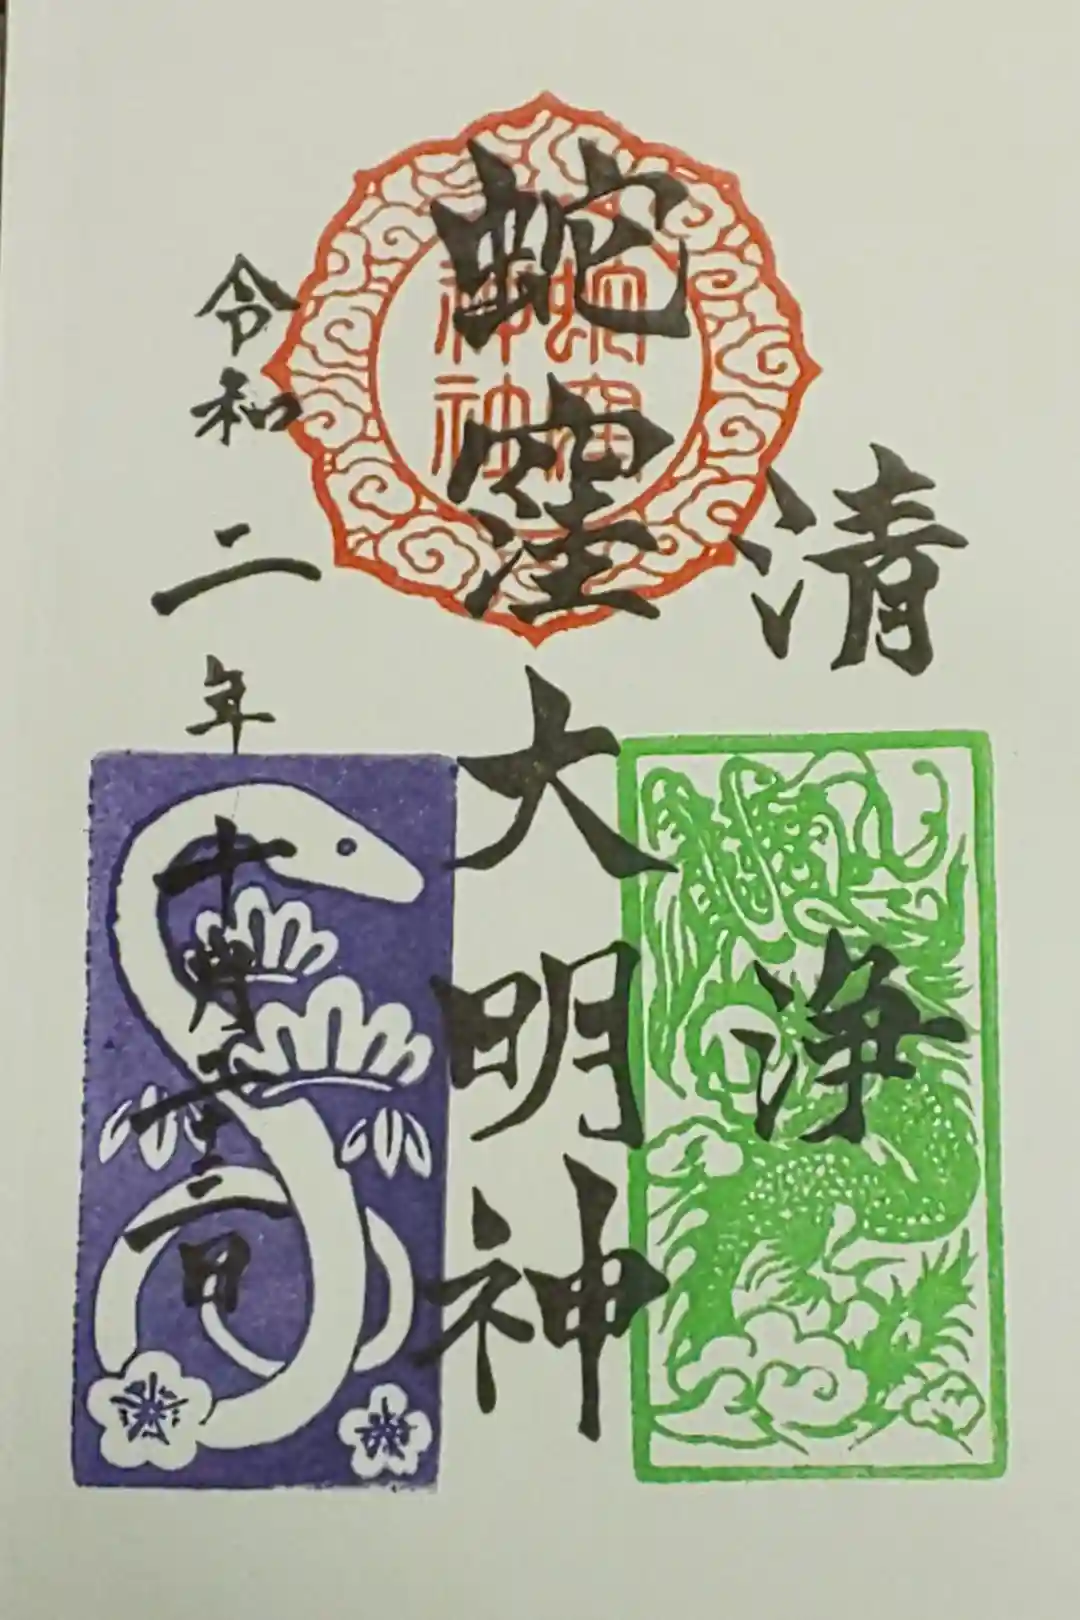 清浄
蛇窪大明神
令和二年十月二十二日
蛇窪
神社